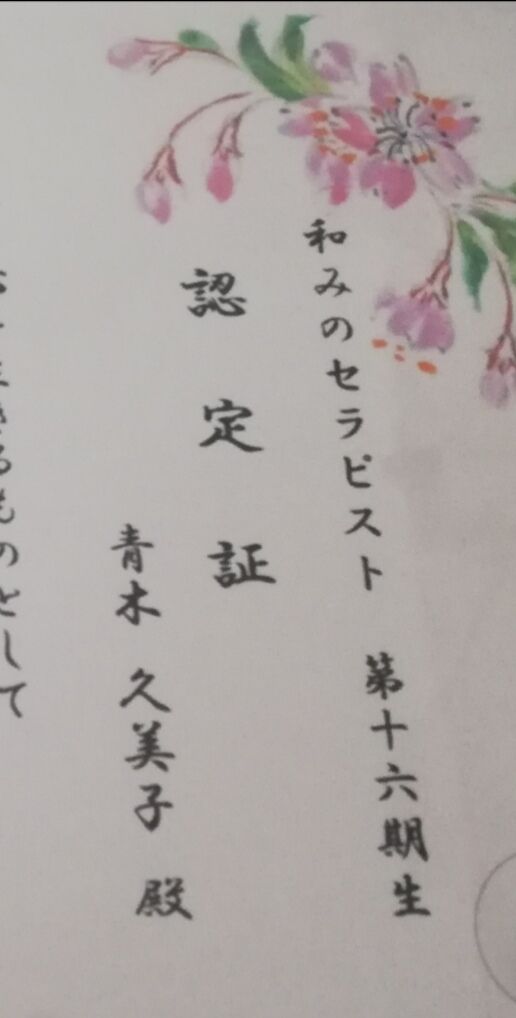 和みのセラピスト 第十六期生
認定証
青木 久美子 殿
きるものとして